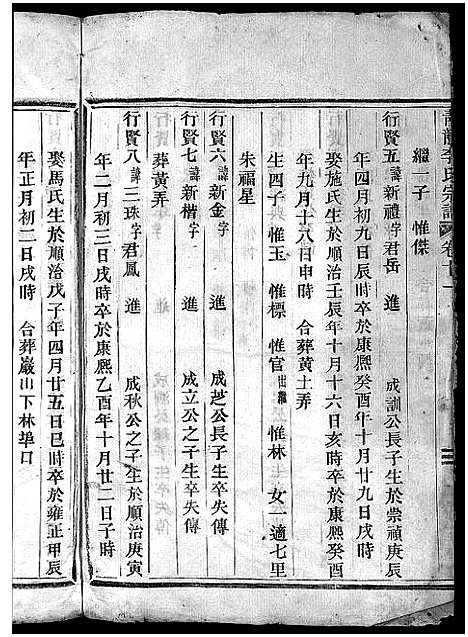 李氏宗譜 卷十一
繼一子 惟傑
行賢五 諱新禮 字君岳 進 成訓公長子生於崇禎庚辰
年四月初九日辰時卒於康熙癸酉年十月廿九日戌時
娶施氏生於順治壬辰年十月十六日亥時卒於康熙癸酉
年九月十八日申時 合葬黃土弄
生四子 惟玉 惟標 惟官出繼 惟林 女一適七里
朱福星
行賢六 諱新金 字 進 成芝公長子生卒失傳
行賢七 諱新楷 字 進 成立公之子生卒失傳
葬黃弄
行賢八 諱三珠 字君鳳 進 成秋公之子生於順治庚寅
年二月初三日戌時卒於康熙乙酉年十月廿二日子時
娶馬氏生於順治戊子年四月廿五日巳時卒於雍正甲辰
年正月初二日戌時 合葬巖山下林埠口